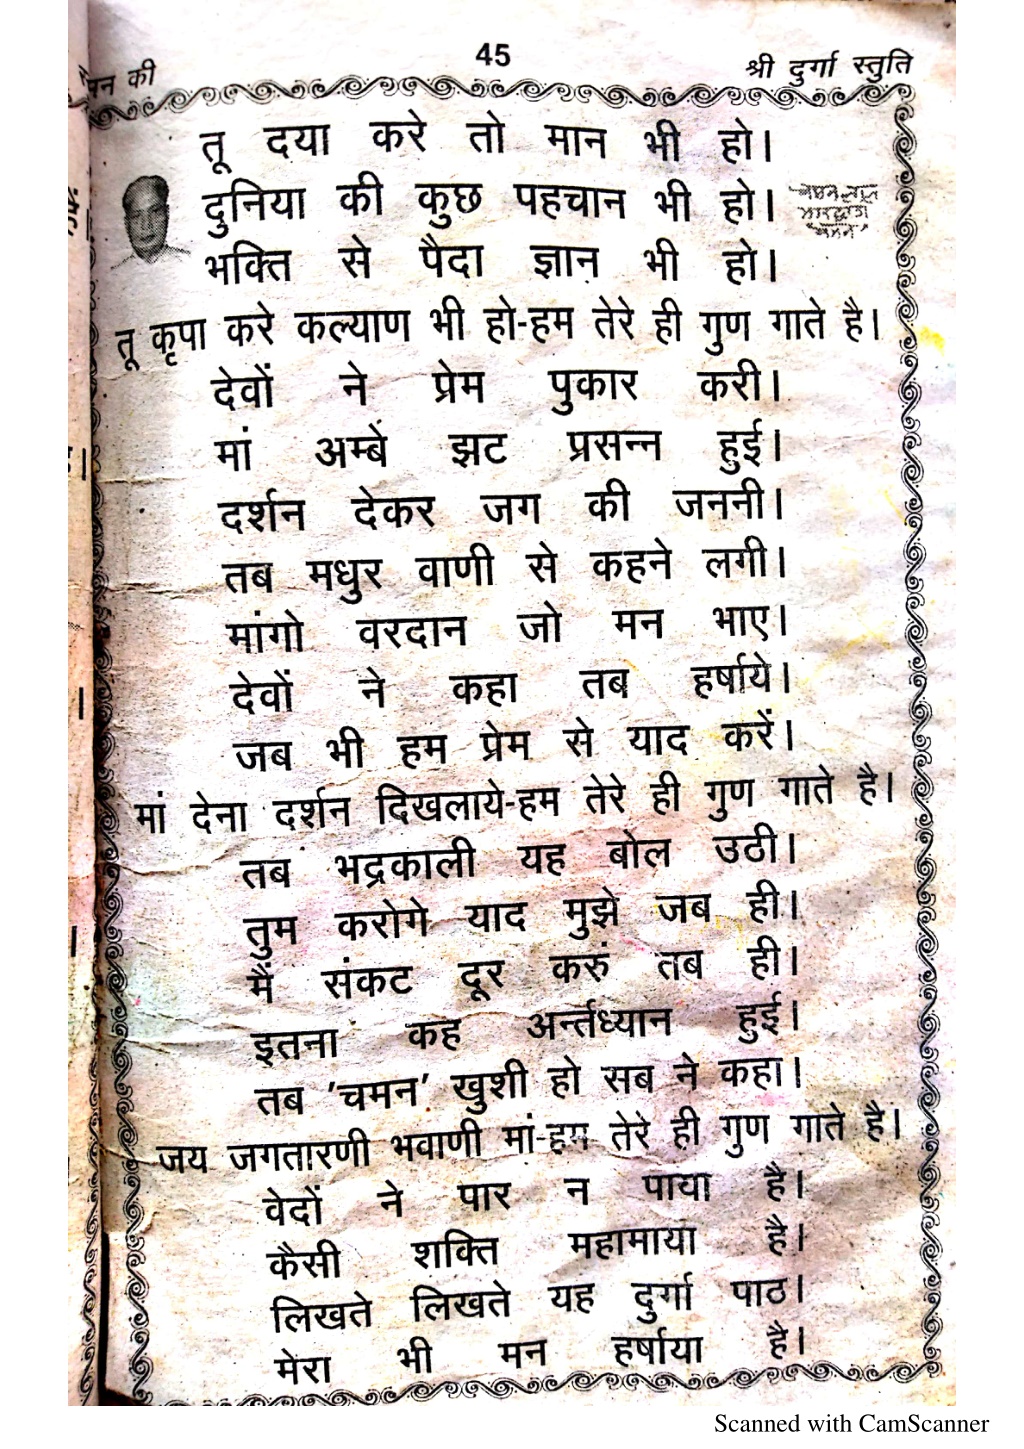 45
श्री दुर्गा स्तुति
की
तू दया करे तो मान भी हो।
दुनिया की कुछ पहचान भी हो।
भक्ति से पैदा ज्ञान भी हो।
तू कृपा करे कल्याण भी हो-हम तेरे ही गुण गाते है।
देवों ने प्रेम पुकार करी।
मां अम्बे झट प्रसन्न हुई।
दर्शन देकर जग की जननी।
तब मधुर वाणी से कहने लगी।
मांगो वरदान जो मन भाए।
देवों ने कहा तब हर्षाये।
जब भी हम प्रेम से याद करें।
मां देना दर्शन दिखलाये-हम तेरे ही गुण गाते है।
तब भद्रकाली यह बोल उठी।
तुम करोगे याद मुझे जब ही।
मैं संकट दूर करुं तब ही।
इतना कह अर्न्तध्यान हुई।
तब 'चमन' खुशी हो सब ने कहा।
जय जगतारणी भवाणी मां-हम तेरे ही गुण गाते है।
वेदों ने पार न पाया है।
कैसी शक्ति महामाया है।
लिखते लिखते यह दुर्गा पाठ।
मेरा भी मन हर्षाया है।
Scanned with CamScanner